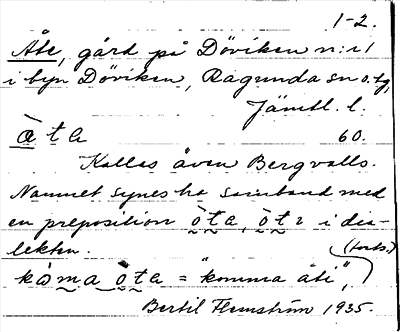 1-2.
Åte, gård på Döviken n:r 1
i byn Döviken, Ragunda sn o. tg,
Jämtl. l.
ò̱ t a 60.
Kallas även Bergvalls.
Namnet synes ha samband med
en preposition ò̰ t a, ò̰ t ɛ i dia-
lekten. (forts.)
kò̰ma ò̰ta = "komma åti",
Bertil Flemström 1935.